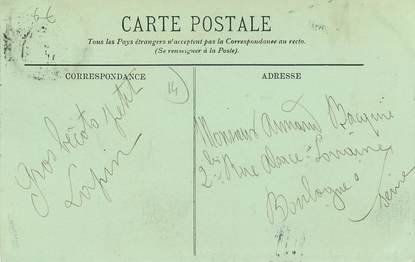 CARTE POSTALE
Tous les Pays étrangers n'acceptent pas la Correspondance au recto.
(Se renseigner à la Poste).
CORRESPONDANCE
Gros bécots petit
Lapin
14
ADRESSE
Monsieur Armand Bacquié
2 bis Rue Alsace-Lorraine
Boulogne s
Seine